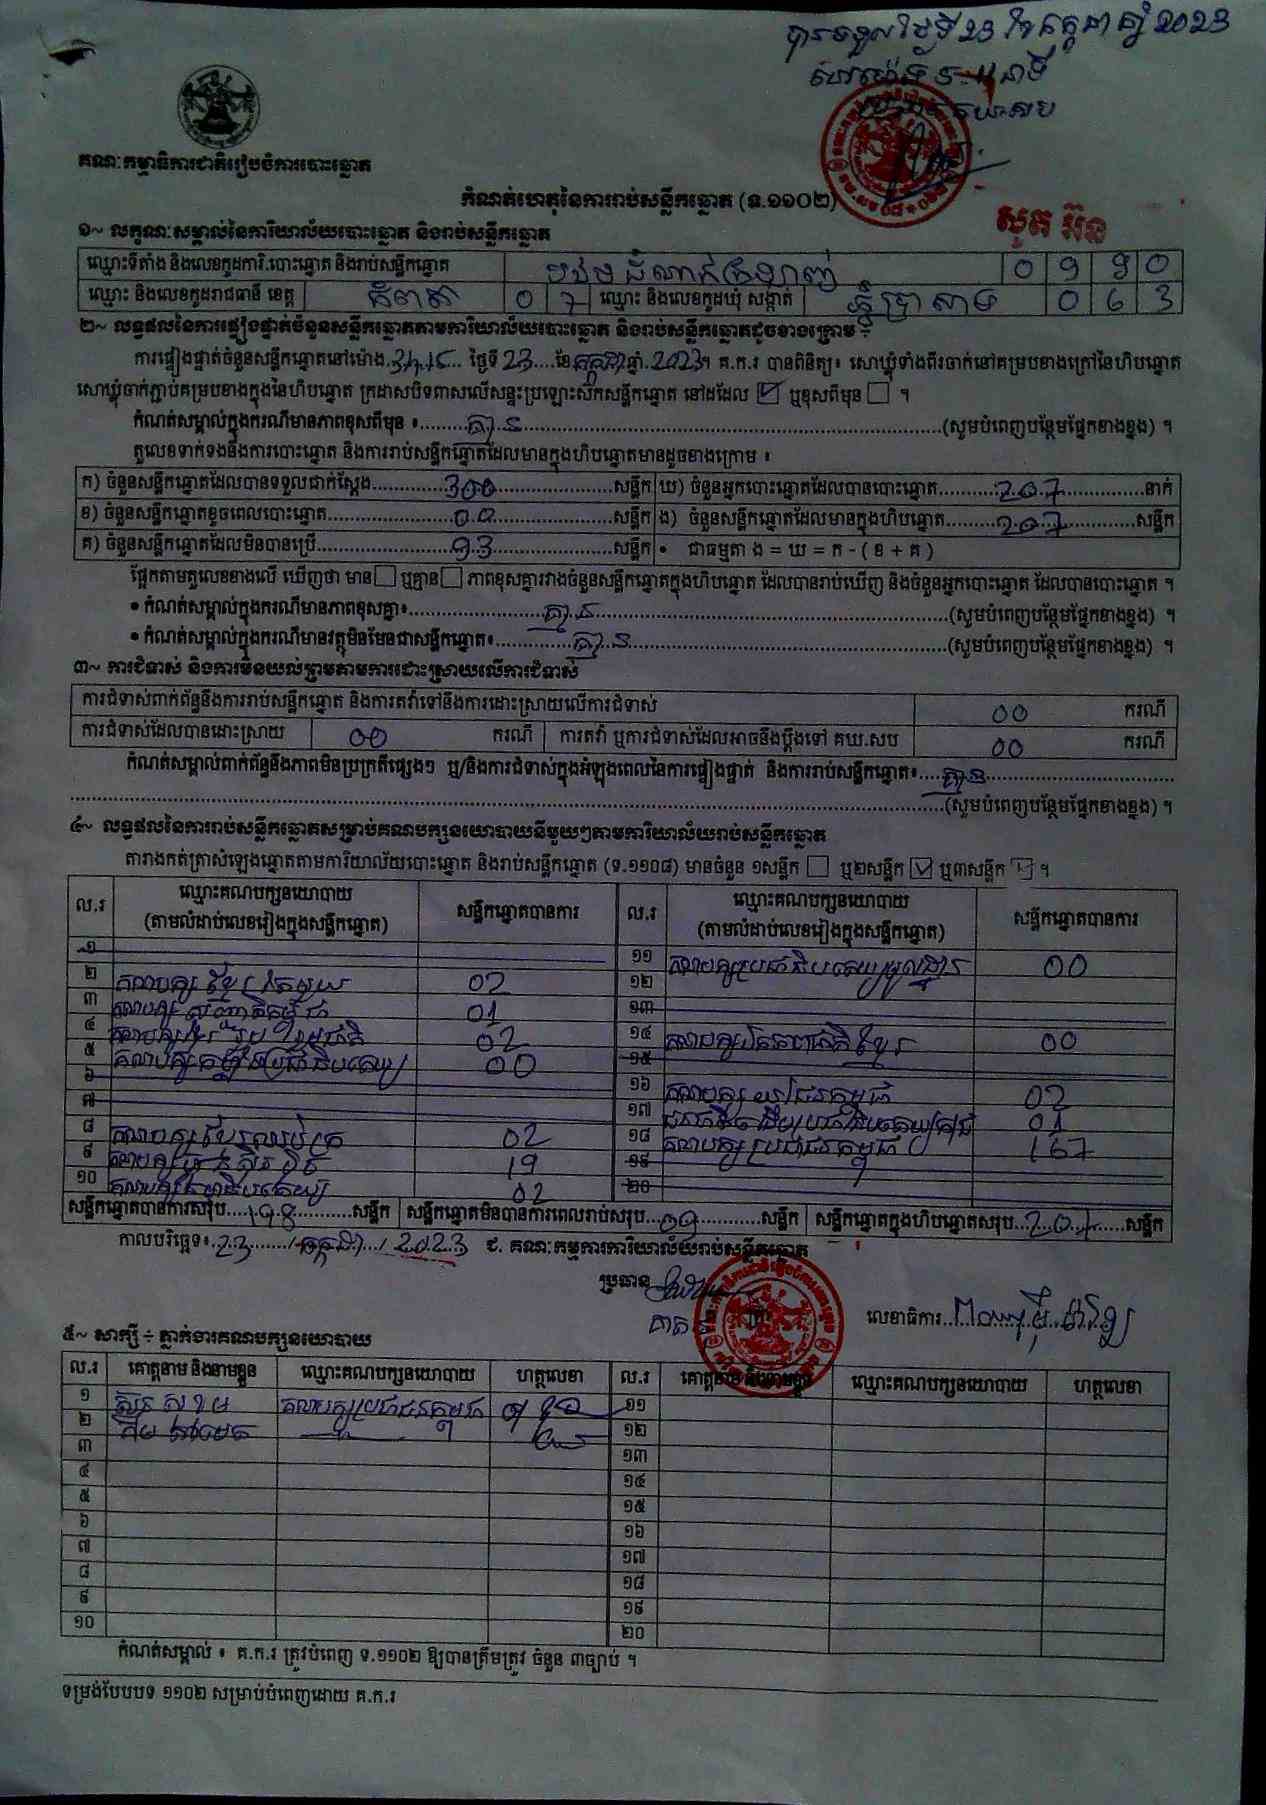 បានទទួលថ្ងៃទី 23 ខែកក្កដា ឆ្នាំ 2023
គណៈកម្មាធិការជាតិរៀបចំការបោះឆ្នោត
កំណត់ហេតុនៃការរាប់សន្លឹកឆ្នោត (ទ.១១០២)
សួត អ៊ន
១~ លក្ខណៈសម្គាល់នៃការិយាល័យបោះឆ្នោត និងរាប់សន្លឹកឆ្នោត
ឈ្មោះទីតាំង និងលេខកូដការិ.បោះឆ្នោត និងរាប់សន្លឹកឆ្នោត 0 9 9 0
ឈ្មោះ និងលេខកូដរាជធានី ខេត្ត កំពត 0 7 ឈ្មោះ និងលេខកូដឃុំ សង្កាត់ 0 6 3
២~ លទ្ធផលនៃការផ្ទៀងផ្ទាត់ចំនួនសន្លឹកឆ្នោតតាមការិយាល័យបោះឆ្នោត និងរាប់សន្លឹកឆ្នោតដូចខាងក្រោម ÷
ការផ្ទៀងផ្ទាត់ចំនួនសន្លឹកឆ្នោតនៅម៉ោង ថ្ងៃទី 23 ខែ កក្កដា ឆ្នាំ 2023។ គ.ក.រ បានពិនិត្យ៖ សោឃ្លុំទាំងពីរចាក់នៅគម្របខាងក្រៅនៃហិបឆ្នោត
សោឃ្លុំចាក់ភ្ជាប់គម្របខាងក្នុងនៃហិបឆ្នោត ក្រដាសបិទពាសលើសន្ទះប្រឡោះសឹកសន្លឹកឆ្នោត នៅដដែល ☑ ឬខុសពីមុន ☐ ។
កំណត់សម្គាល់ក្នុងករណីមានភាពខុសពីមុន ៖ គ្មាន (សូមបំពេញបន្ថែមផ្នែកខាងខ្នង) ។
តួលេខទាក់ទងនឹងការបោះឆ្នោត និងការរាប់សន្លឹកឆ្នោតដែលមានក្នុងហិបឆ្នោតមានដូចខាងក្រោម ៖
ក) ចំនួនសន្លឹកឆ្នោតដែលបានទទួលជាក់ស្តែង 300 សន្លឹក ឃ) ចំនួនអ្នកបោះឆ្នោតដែលបានបោះឆ្នោត 207 នាក់
ខ) ចំនួនសន្លឹកឆ្នោតខូចពេលបោះឆ្នោត 00 សន្លឹក ង) ចំនួនសន្លឹកឆ្នោតដែលមានក្នុងហិបឆ្នោត 207 សន្លឹក
គ) ចំនួនសន្លឹកឆ្នោតដែលមិនបានប្រើ 93 សន្លឹក • ជាធម្មតា ង = ឃ = ក - ( ខ + គ )
ផ្អែកតាមតួលេខខាងលើ ឃើញថា មាន ☐ ឬគ្មាន ☐ ភាពខុសគ្នារវាងចំនួនសន្លឹកឆ្នោតក្នុងហិបឆ្នោត ដែលបានរាប់ឃើញ និងចំនួនអ្នកបោះឆ្នោត ដែលបានបោះឆ្នោត ។
• កំណត់សម្គាល់ក្នុងករណីមានភាពខុសគ្នា៖ គ្មាន (សូមបំពេញបន្ថែមផ្នែកខាងខ្នង) ។
• កំណត់សម្គាល់ក្នុងករណីមានវត្ថុមិនមែនជាសន្លឹកឆ្នោត៖ គ្មាន (សូមបំពេញបន្ថែមផ្នែកខាងខ្នង) ។
៣~ ការជំទាស់ និងការមិនយល់ព្រមតាមការដោះស្រាយលើការជំទាស់
ការជំទាស់ពាក់ព័ន្ធនឹងការរាប់សន្លឹកឆ្នោត និងការតវ៉ាទៅនឹងការដោះស្រាយលើការជំទាស់ 00 ករណី
ការជំទាស់ដែលបានដោះស្រាយ 00 ករណី ការតវ៉ា ឬការជំទាស់ដែលអាចនឹងប្តឹងទៅ គឃ.សប 00 ករណី
កំណត់សម្គាល់ពាក់ព័ន្ធនឹងភាពមិនប្រក្រតីផ្សេងៗ ឬ/និងការជំទាស់ក្នុងអំឡុងពេលនៃការផ្ទៀងផ្ទាត់ និងការរាប់សន្លឹកឆ្នោត៖ គ្មាន
(សូមបំពេញបន្ថែមផ្នែកខាងខ្នង) ។
៤~ លទ្ធផលនៃការរាប់សន្លឹកឆ្នោតសម្រាប់គណបក្សនយោបាយនីមួយៗតាមការិយាល័យរាប់សន្លឹកឆ្នោត
តារាងកត់ត្រាសំឡេងឆ្នោតតាមការិយាល័យបោះឆ្នោត និងរាប់សន្លឹកឆ្នោត (ទ.១១០៨) មានចំនួន ១សន្លឹក ☐ ឬ២សន្លឹក ☑ ឬ៣សន្លឹក ☐ ។
ល.រ ឈ្មោះគណបក្សនយោបាយ (តាមលំដាប់លេខរៀងក្នុងសន្លឹកឆ្នោត) សន្លឹកឆ្នោតបានការ ល.រ ឈ្មោះគណបក្សនយោបាយ (តាមលំដាប់លេខរៀងក្នុងសន្លឹកឆ្នោត) សន្លឹកឆ្នោតបានការ
១ ១១ គណបក្សប្រជាធិបតេយ្យមូលដ្ឋាន 00
២ គណបក្សខ្មែររួបរួម 02 ១២
៣ 01 ១៣
៤ 02 ១៤ គណបក្សឯកភាពជាតិខ្មែរ 00
៥ គណបក្សកម្លាំងប្រជាធិបតេយ្យ 00 ១៥
៦ ១៦ គណបក្សយុវជនកម្ពុជា 02
៧ ១៧ 01
៨ គណបក្សខ្មែរឈប់ក្រ 02 ១៨ គណបក្សប្រជាជនកម្ពុជា 167
៩ គណបក្សហ៊្វុនស៊ិនប៉ិច 19 ១៩
១០ 02 ២០
សន្លឹកឆ្នោតបានការសរុប 198 សន្លឹក សន្លឹកឆ្នោតមិនបានការពេលរាប់សរុប 09 សន្លឹក សន្លឹកឆ្នោតក្នុងហិបឆ្នោតសរុប 207 សន្លឹក
កាលបរិច្ឆេទ៖ 23 / កក្កដា / 2023 ជ. គណៈកម្មការការិយាល័យរាប់សន្លឹកឆ្នោត
ប្រធាន
លេខាធិការ
៥~ សាក្សី ÷ ភ្នាក់ងារគណបក្សនយោបាយ
ល.រ គោត្តនាម និងនាមខ្លួន ឈ្មោះគណបក្សនយោបាយ ហត្ថលេខា ល.រ គោត្តនាម និងនាមខ្លួន ឈ្មោះគណបក្សនយោបាយ ហត្ថលេខា
១ គណបក្សប្រជាជនកម្ពុជា ១១
២ ១២
៣ ១៣
៤ ១៤
៥ ១៥
៦ ១៦
៧ ១៧
៨ ១៨
៩ ១៩
១០ ២០
កំណត់សម្គាល់ ៖ គ.ក.រ ត្រូវបំពេញ ទ.១១០២ ឱ្យបានត្រឹមត្រូវ ចំនួន ៣ច្បាប់ ។
ទម្រង់បែបបទ ១១០២ សម្រាប់បំពេញដោយ គ.ក.រ